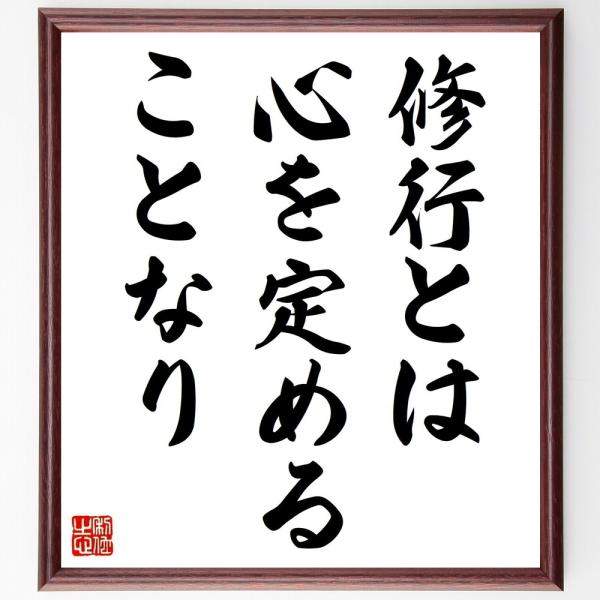 修行とは
心を定める
ことなり